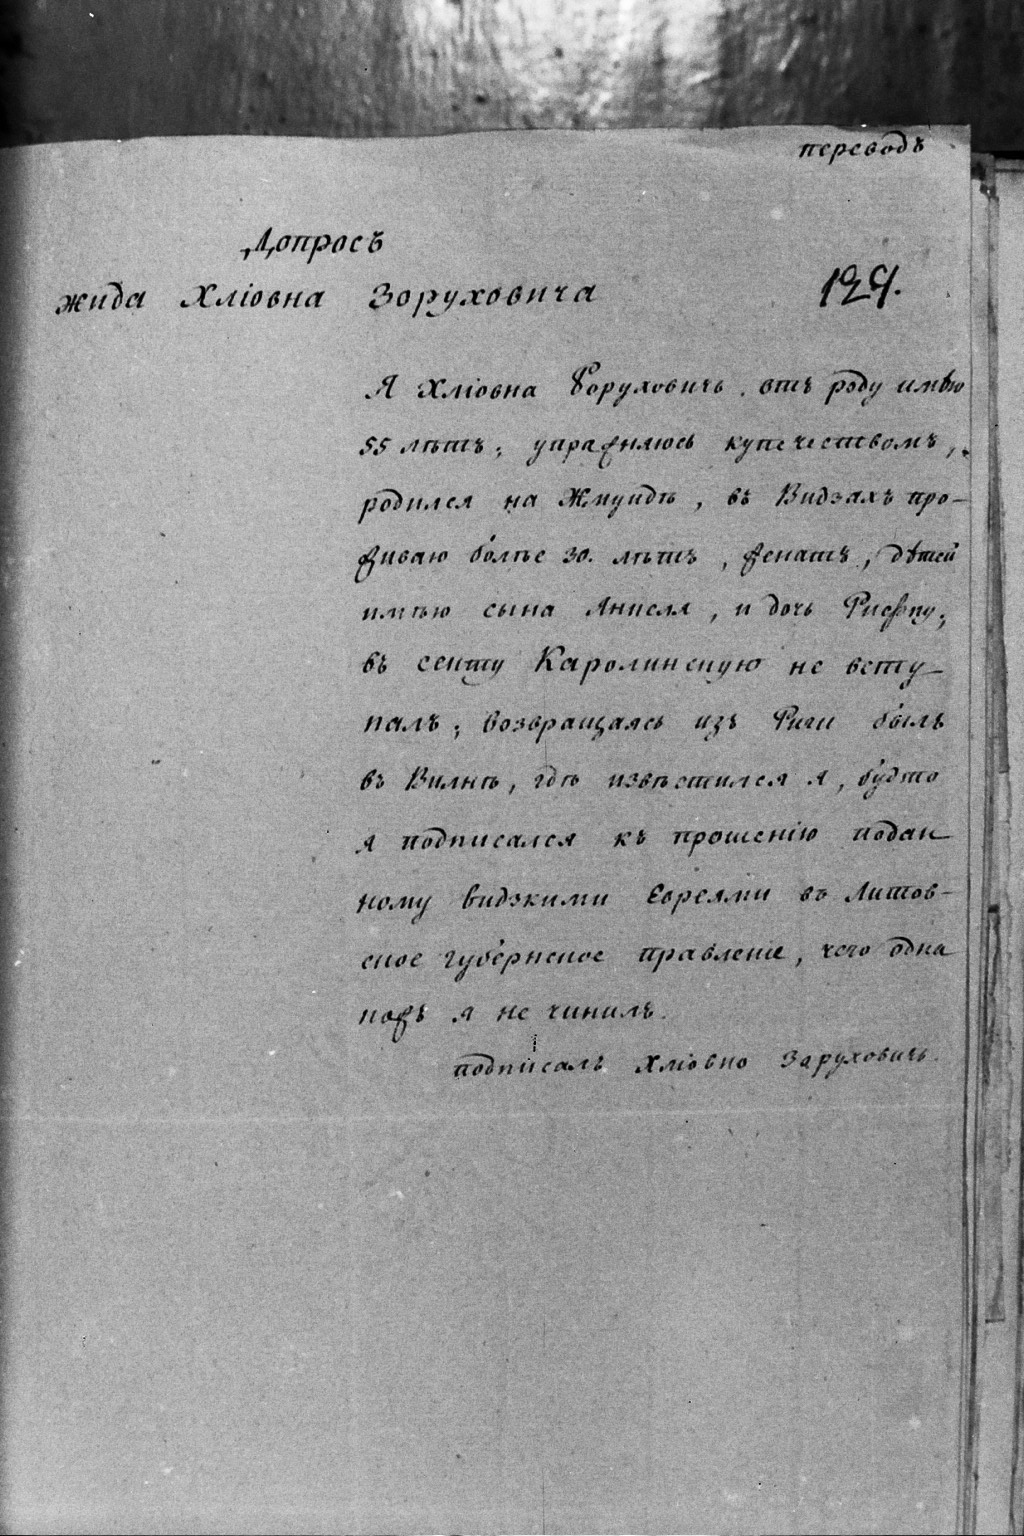 переводъ
Допросъ
жида Хліовна Зоруховича
129.
Я Хліовна Зоруховичь. отъ роду имѣю
55 лѣтъ; упражняюсь купечествомъ,
родился на Жмуидѣ, въ Видзахъ про-
живаю болѣе 30. лѣтъ, женатъ, дѣтей
имѣю сына Анцеля, и дочь
въ секту Каролинскую не всту-
палъ; возвращаясь изъ Риги былъ
въ Вилнѣ, гдѣ извѣстился я, будто
я подписался къ прошенію подан
ному видзкими Евреями въ Литов-
ское губернское правленіе, чего одна
кожъ я не чинилъ.
подписалъ Хліовно Заруховичь.